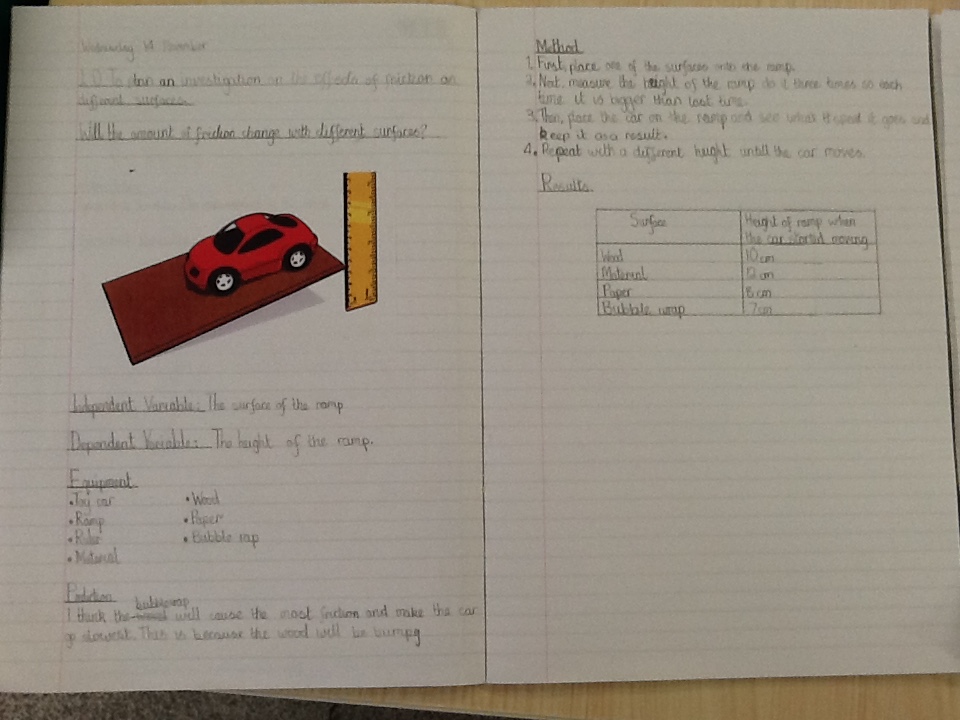 Wednesday 14 November
L.O To plan an investigation on the effects of friction on
different surfaces.
Will the amount of friction change with different surfaces?
Independent Variable: The surface of the ramp
Dependent Variable: The height of the ramp.
Equipment
• Toy car
• Ramp
• Ruler
• Material
• Wood
• Paper
• Bubble rap
Prediction
bubblewrap
I think the will cause the most friction and make the car
go slowest. This is because the wood will be bumpy
Method
1. First, place one of the surfaces onto the ramp.
2. Next, measure the height of the ramp do it three times so each
time it is bigger than last time.
3. Then, place the car on the ramp and see what speed it goes and
keep it as a result.
4. Repeat with a different height untill the car moves.
Results
Surface Height of ramp when
the car started moving
Wood 10cm
Material 12 cm
Paper 8 cm
Bubble wrap 7cm